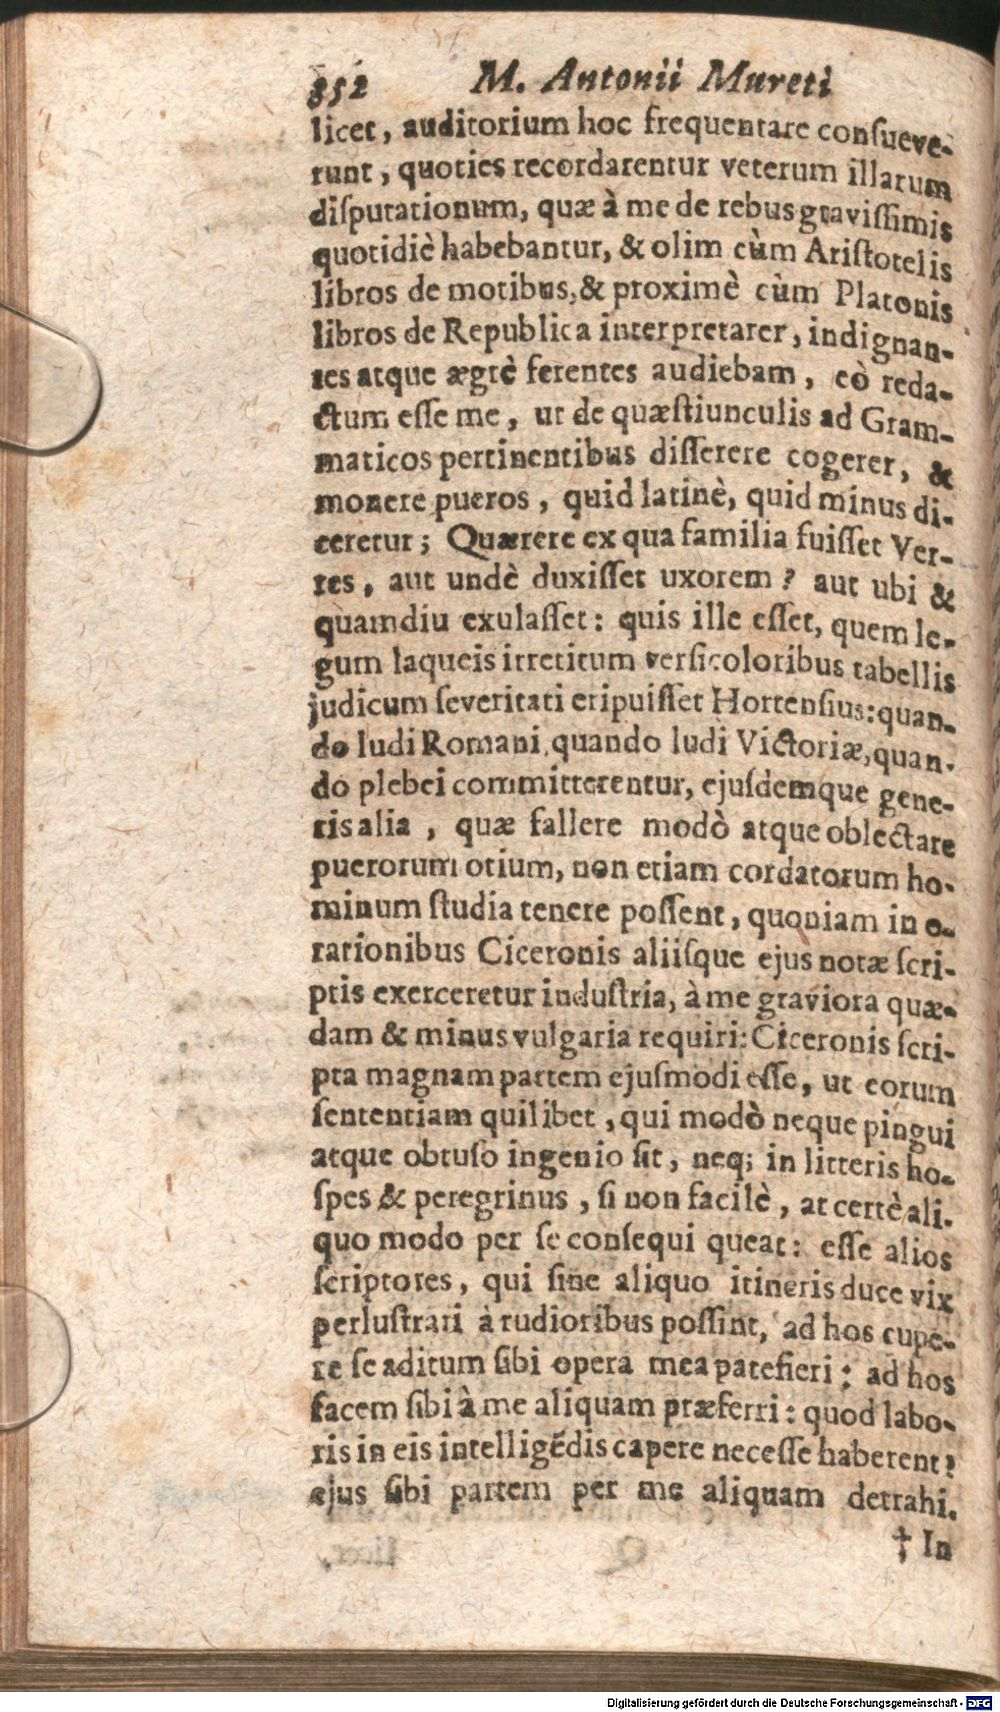 352 M. Antonii Mureti
licet, auditorium hoc frequentare conſueve-
runt, quoties recordarentur veterum illarum
diſputationum, quæ à me de rebus graviſſimis
quotidiè habebantur, & olim cùm Ariſtotelis
libros de moribus, & proximè cùm Platonis
libros de Republica interpretarer, indignan-
tes atque ægrè ferentes audiebam, eò reda-
ctum eſſe me, ut de quæſtiunculis ad Gram-
maticos pertinentibus diſſerere cogerer, &
monere pueros, quid latinè, quid minus di-
ceretur; Quærere ex qua familia fuiſſet Ver-
res, aut undè duxiſſet uxorem? aut ubi &
quamdiu exulaſſet: quis ille eſſet, quem le-
gum laqueis irretitum verſicoloribus tabellis
judicum ſeveritati eripuiſſet Hortenſius: quan-
do ludi Romani, quando ludi Victoriæ, quan-
do plebei committerentur, ejuſdemque gene-
ris alia, quæ fallere modò atque oblectare
puerorum otium, non etiam cordatorum ho-
minum ſtudia tenere poſſent, quoniam in o-
rationibus Ciceronis aliiſque ejus notæ ſcri-
ptis exerceretur induſtria, à me graviora quæ-
dam & minus vulgaria requiri: Ciceronis ſcri-
pta magnam partem ejuſmodi eſſe, ut eorum
ſententiam quilibet, qui modò neque pingui
atque obtuſo ingenio ſit, neq; in litteris ho-
ſpes & peregrinus, ſi non facilè, at certè ali-
quo modo per ſe conſequi queat: eſſe alios
ſcriptores, qui ſine aliquo itineris duce vix
perluſtrari à rudioribus poſſint, ad hos cupe-
re ſe aditum ſibi opera mea patefieri: ad hos
facem ſibi à me aliquam præferri: quod labo-
ris in eis intelligēdis capere neceſſe haberent?
ejus ſibi partem per me aliquam detrahi.
† In
Digitalisierung gefördert durch die Deutsche Forschungsgemeinschaft - DFG